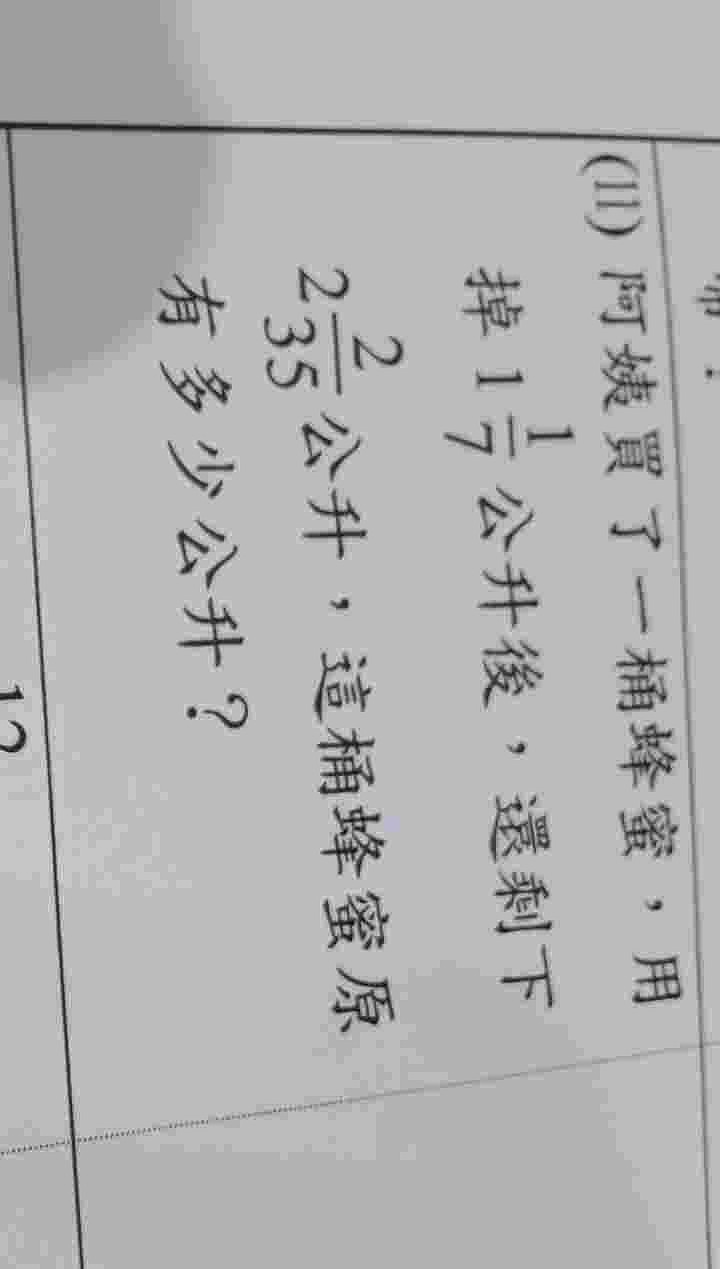 (11) 阿姨買了一桶蜂蜜，用
掉 1 1/7 公升後，還剩下
2 2/35 公升，這桶蜂蜜原
有多少公升？
12